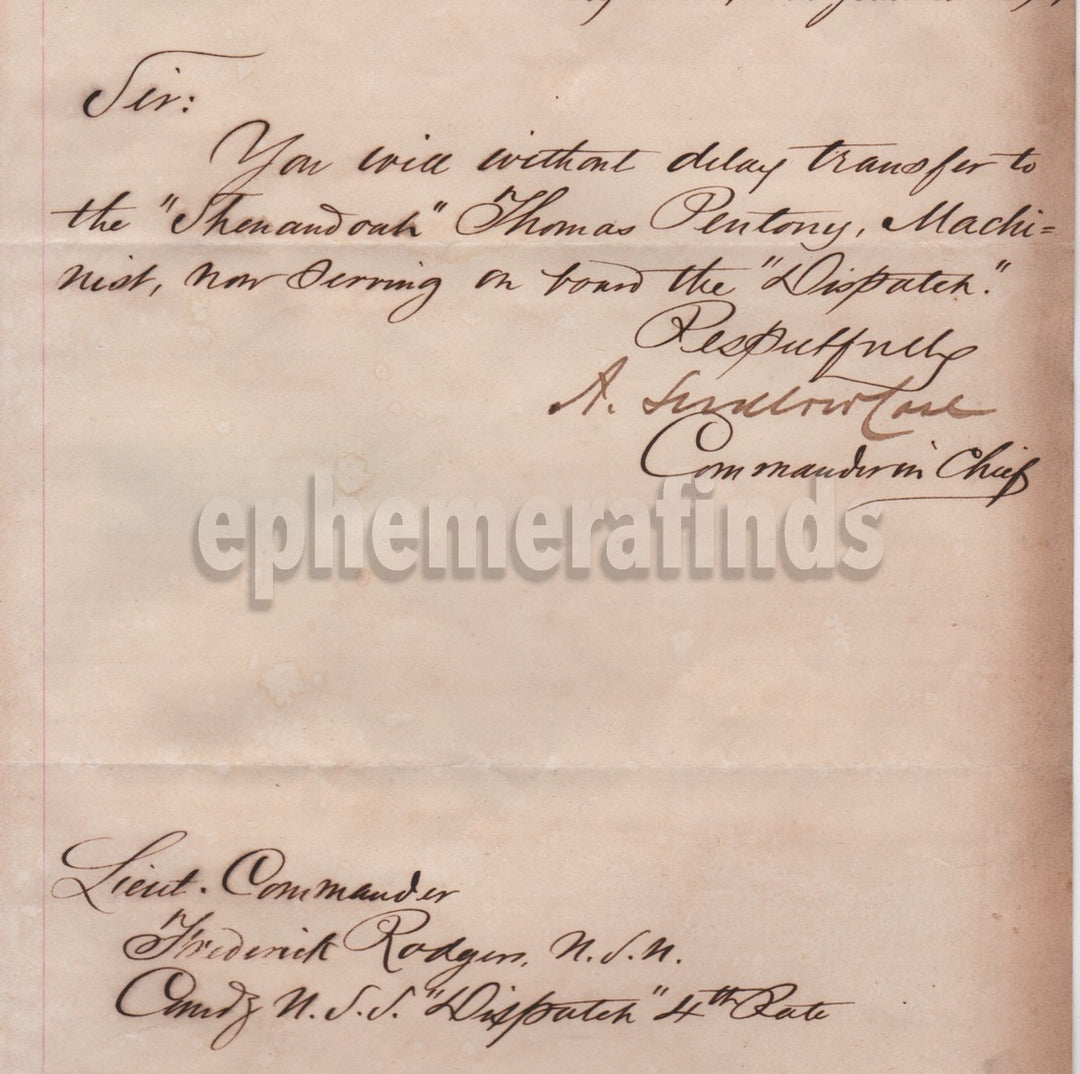 Sir:
You will without delay transfer to
the "Shenandoah" Thomas Pentony, Machi=
nist, now serving on board the "Dispatch."
Respectfully
A. Ludlow Case
Commander in Chief
ephemerafinds
Lieut. Commander
Frederick Rodgers, U.S.N.
Comdg U.S.S. "Dispatch" 4th Rate